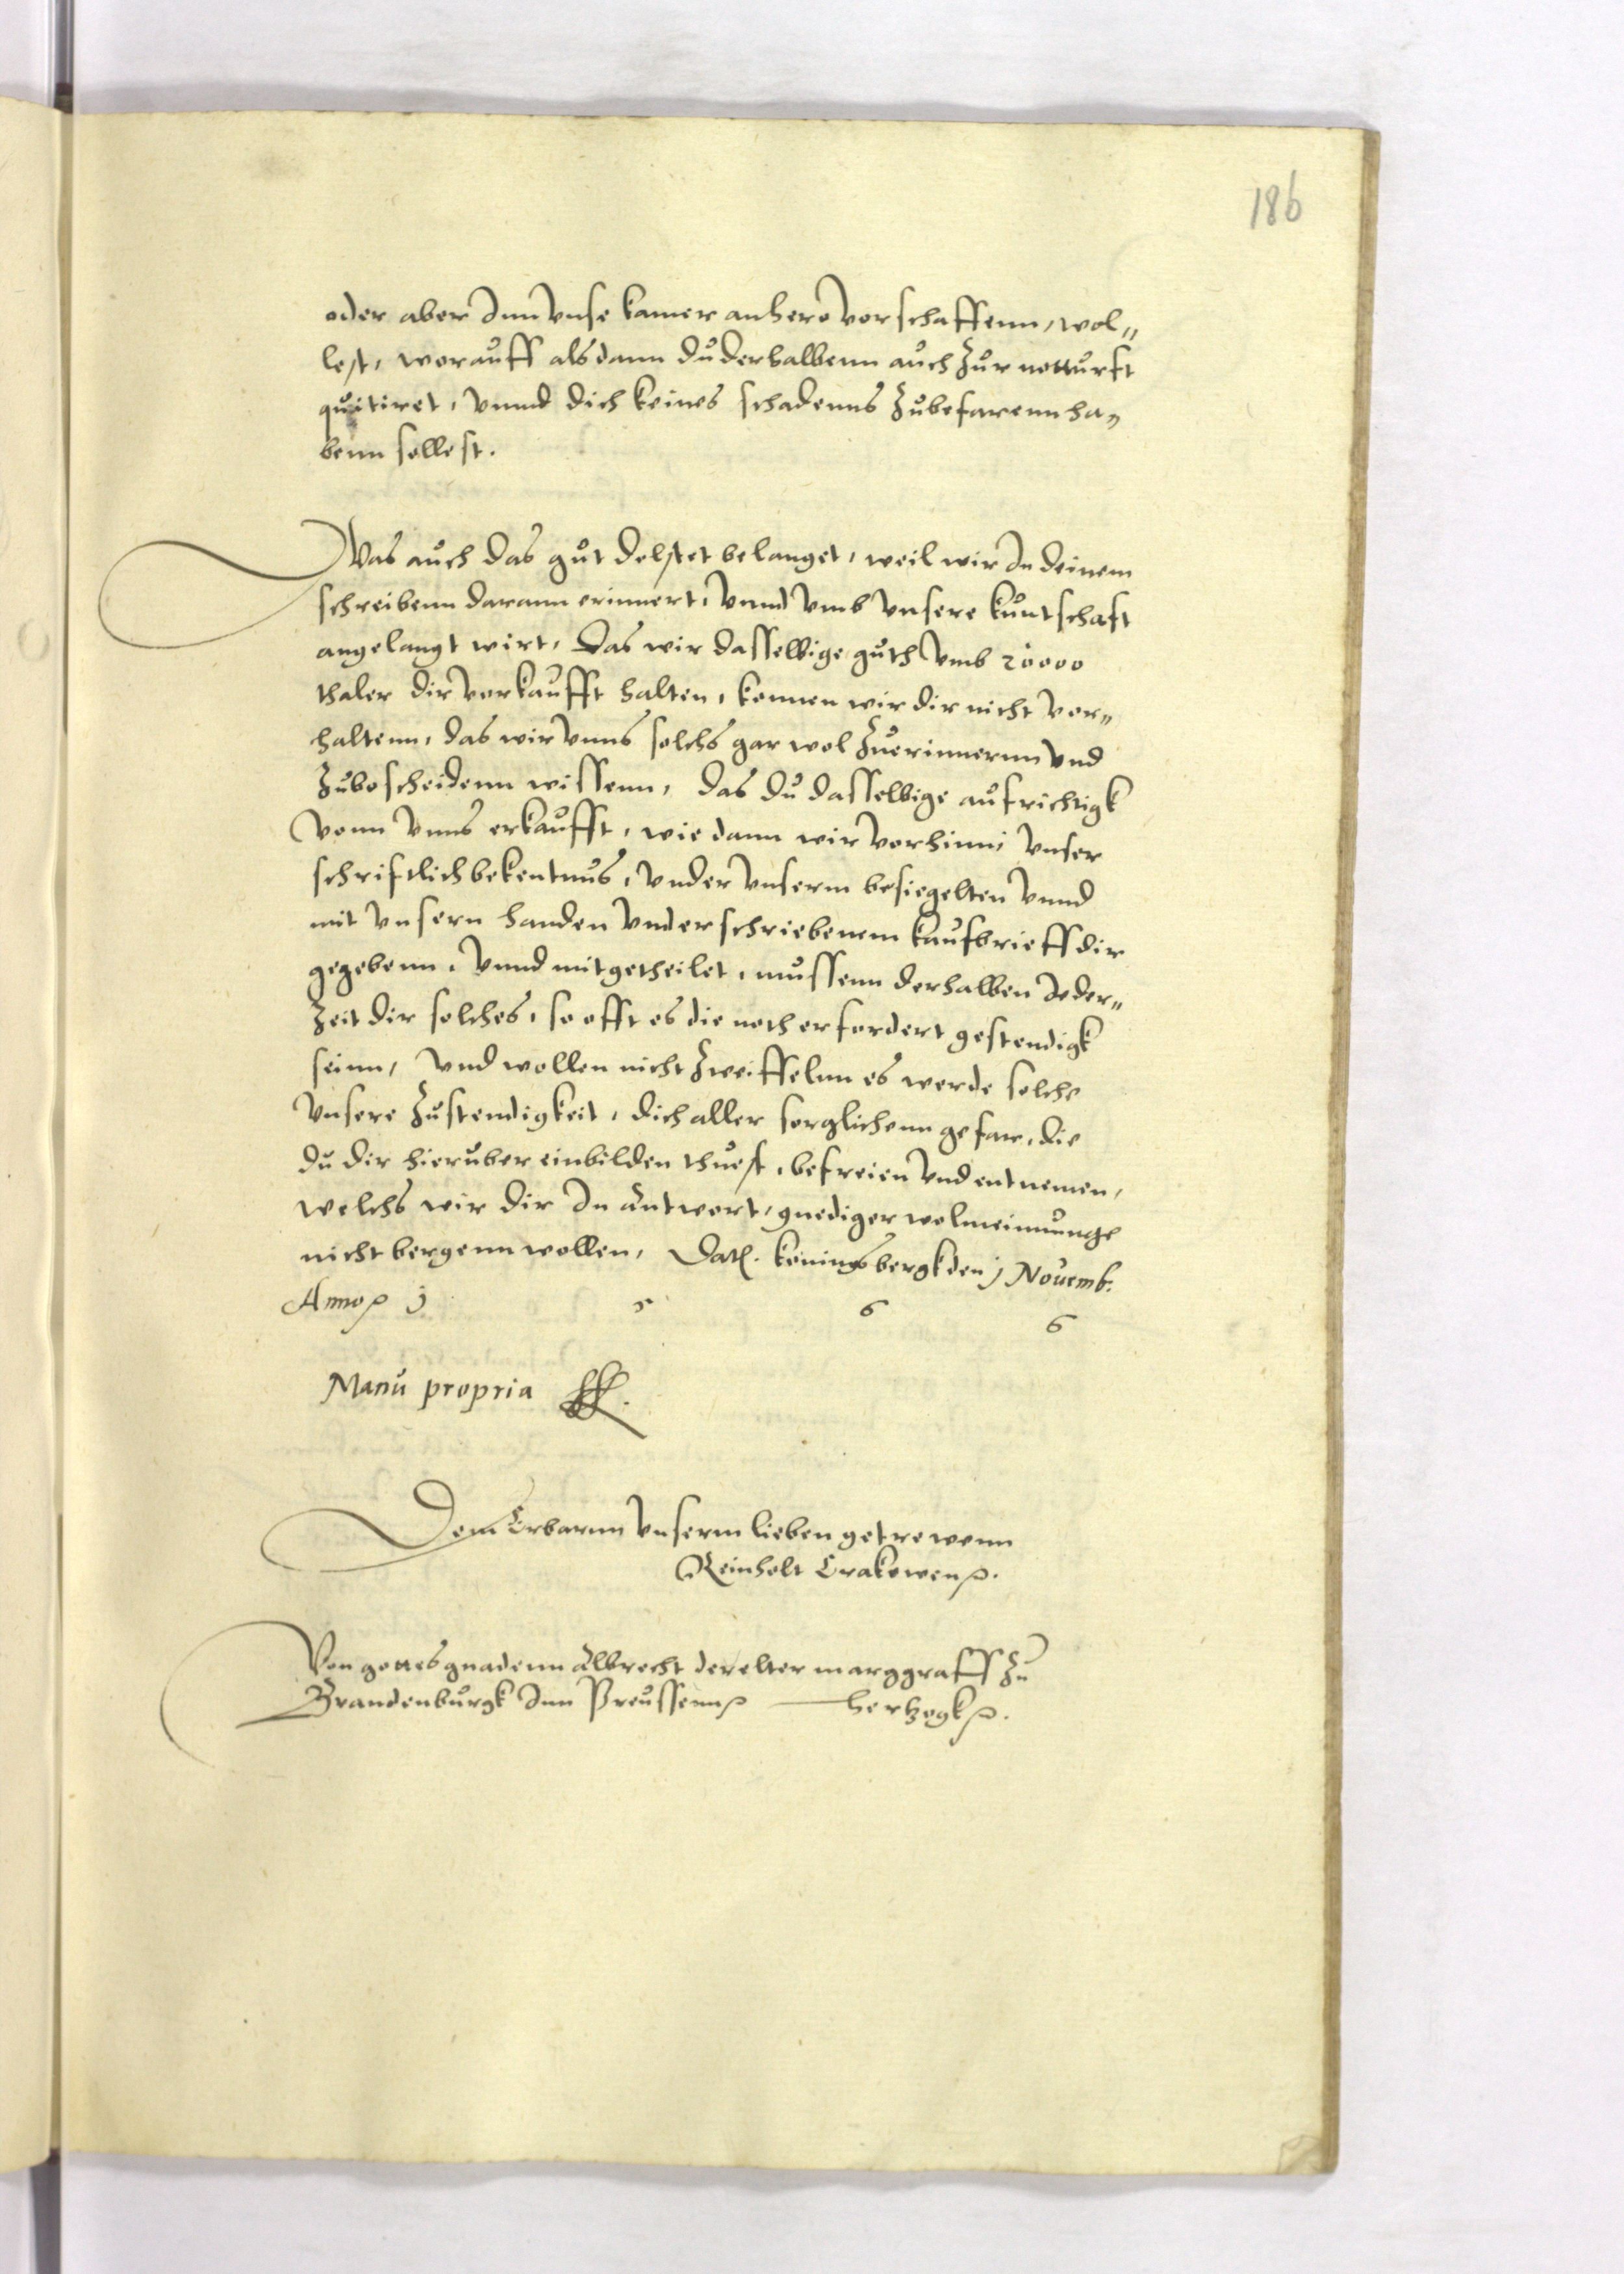 186
oder aber Inn Vnse kamer anhero vorschaffenn, wol„
lest, worauff alsdann du derhalbenn auch zur notturft
quitiret, vnnd dich keines schadenns zubefarenn ha„
benn sollest.
Was auch das gut Dolstet belanget, weil wir In deinem
schreibenn darann erinnert, Vnnd vmb vnsere kuntschaft
angelangt wirt, Das wir dasselbige guth vmb 20000
thaler dir verkaufft halten, konnen wir dir nicht vor„
haltenn, das wir vnns solchs gar wol zuerinnernn vnd
zubescheidenn wissenn, das du dasselbige aufrichtigk
vonn vnns erkaufft, wie dann wir vorhinn vnser
schriftlich bekentnus, vnder vnserm besiegelten vnnd
mit vnsern handen vnderschriebenem kaufbrieff dir
gegebenn, vnnd mitgetheilet, mussenn derhalben Jeder„
zeit dir solches, so offt es die noth erfordert gestendigk
seinn, vnd wollen nicht zweiffelnn es werde solche
vnsere zustendigkeit, dich aller sorglichenn gefar, die
du dir hieruber einbilden thuest, befreien vnd entnemen,
welchs wir dir In antwort, gnediger wolmeinunge
nicht bergenn wollen, Dat. konigsbergk den j Nouemb.
Anno j 5 6 6
Manu propria
Dem Erbarnn vnserm lieben getrewenn
Reinholt Crakowen.
Von gottes gnadenn Albrecht der elter marggraff zu
Brandenburgk Inn Preussenn hertzogk.